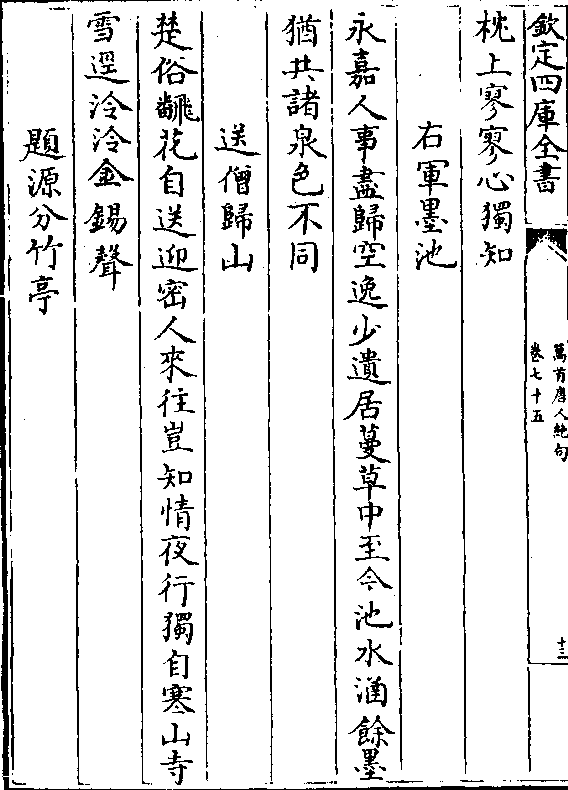 欽定四庫全書
萬首唐人絶句
卷七十五
十三
枕上寥寥心獨知
右軍墨池
永嘉人事盡歸空逸少遺居蔓草中至今池水涵餘墨
猶共諸泉色不同
送僧歸山
楚俗翻花自送迎密人來往豈知情夜行獨自寒山寺
雪逕泠泠金錫聲
題源分竹亭